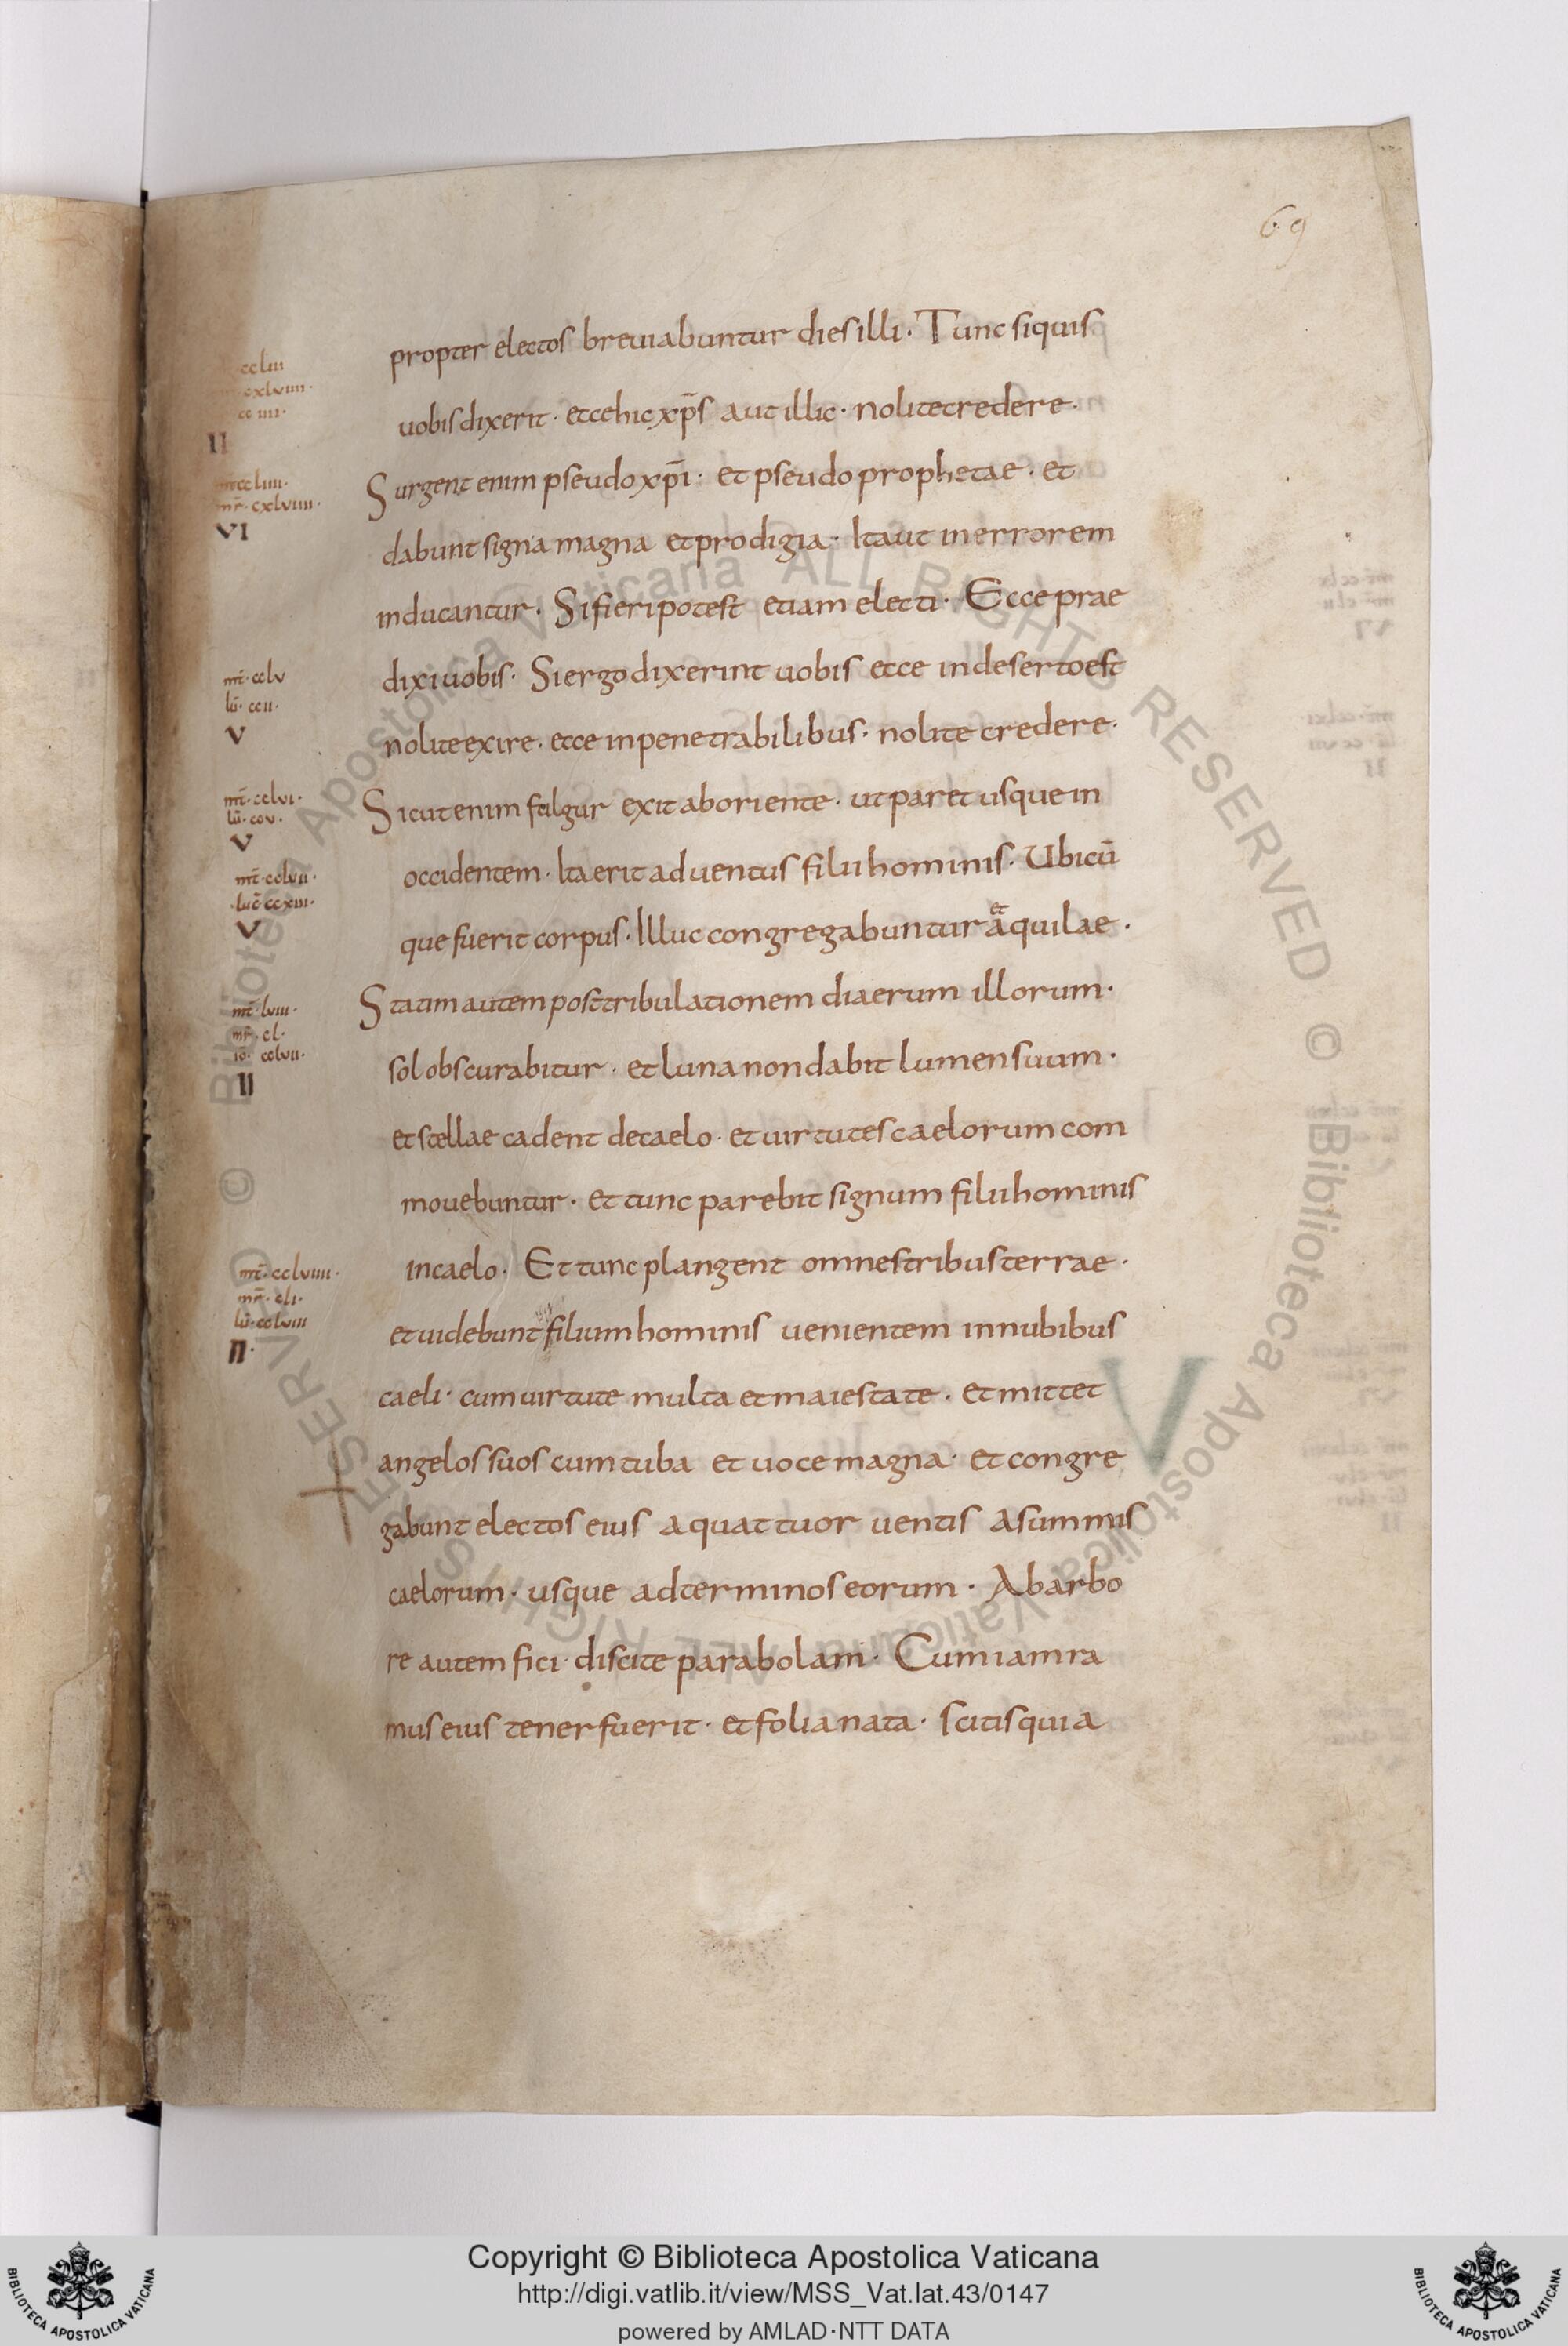 69
propter electos breuiabuntur dies illi· Tunc siquis
uobis dixerit· ecce hic xp̄s aut illic· nolite credere·
Surgent enim pseudo xp̄i· et pseudo prophetae· et
dabunt signa magna et prodigia· Ita ut in errorem
inducantur· Si fieri potest etiam electi· Ecce prae
dixi uobis· Si ergo dixerint uobis ecce in deserto est
nolite exire· ecce in penetrabilibus· nolite credere·
Sicut enim fulgur exit ab oriente· ut paret usque in
occidentem· Ita erit aduentus filii hominis· Ubicū
que fuerit corpus· Illuc congregabuntur et aquilae·
Statim autem post tribulationem diaerum illorum·
sol obscurabitur· et luna non dabit lumen suum·
et stellae cadent de caelo· et uirtutes caelorum com
mouebuntur· et tunc parebit signum filii hominis
in caelo· Et tunc plangent omnes tribus terrae·
et uidebunt filium hominis uenientem in nubibus
caeli· cum uirtute multa et maiestate· et mittet
angelos suos cum tuba et uoce magna· et congre
gabunt electos eius a quattuor uentis a summis
caelorum· usque ad terminos eorum· Ab arbo
re autem fici· discite parabolam· Cum iam ra
mus eius tener fuerit· et folia nata· scitis quia
II
mr̄· cxlviiii·
VI
mt̄· cclv
lū· ccii·
V
mt̄· cclvi·
lū· ccv·
V
mt̄· cclvii·
luc̄ ccxiii·
V
mt̄· lviii·
mr̄· cl·
io̅· cclvii·
II
mt̄· cclviiii·
mr̄· cli·
lū· cclviii
II·
V
Copyright © Biblioteca Apostolica Vaticana
http://digi.vatlib.it/view/MSS_Vat.lat.43/0147
powered by AMLAD·NTT DATA
BIBLIOTECA APOSTOLICA VATICANA
BIBLIOTECA APOSTOLICA VATICANA
© Biblioteca Apostolica Vaticana ALL RIGHTS RESERVED
© Biblioteca Apostolica Vaticana ALL RIGHTS RESERVED